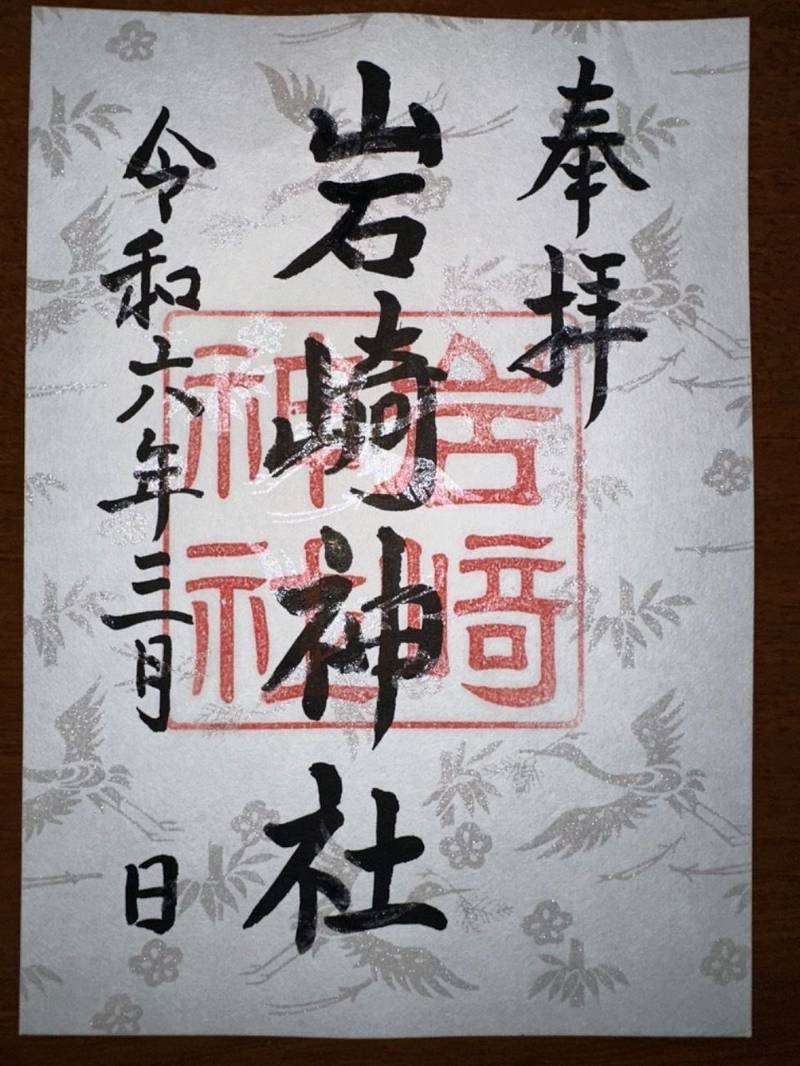 奉拝
岩崎神社
岩崎
神社
令和六年三月 日